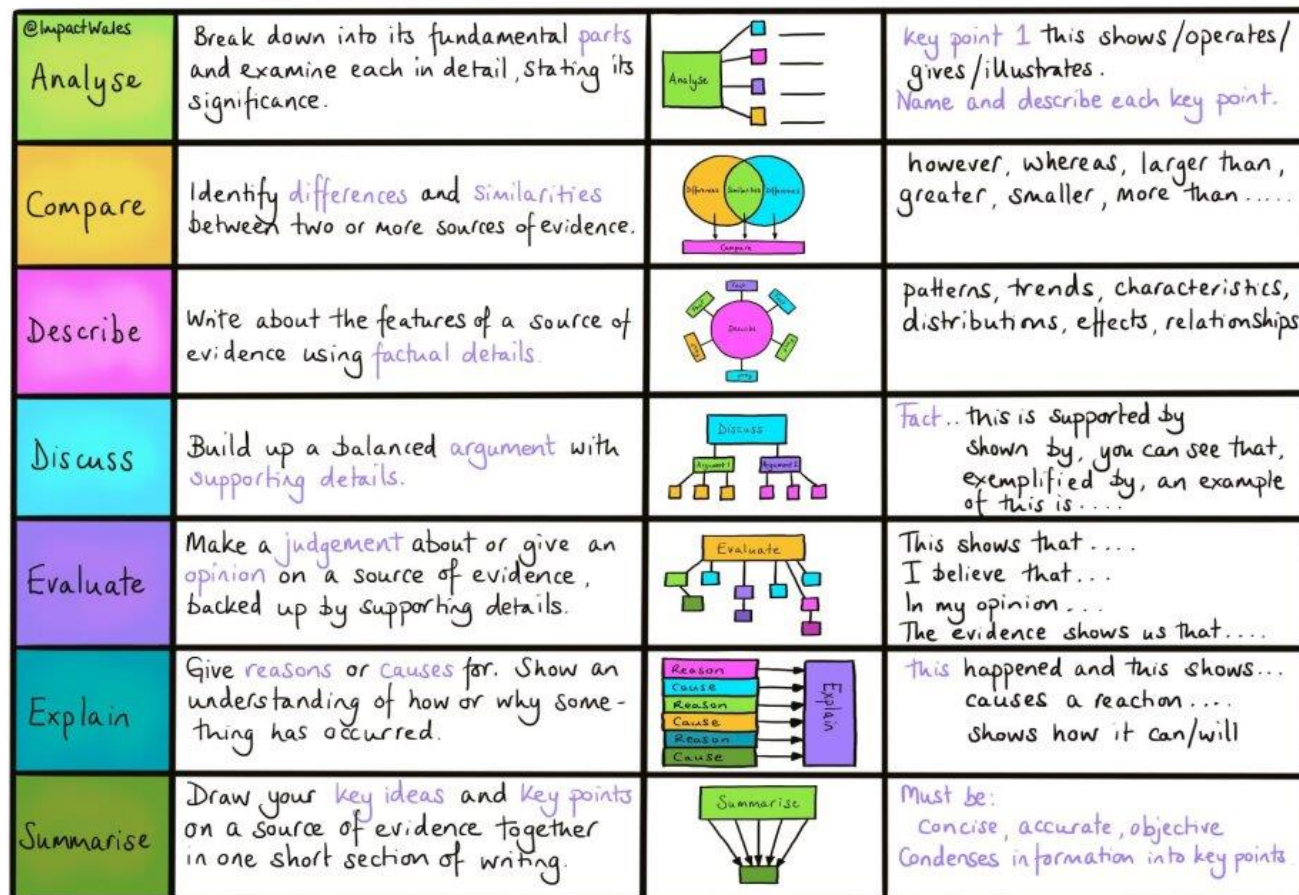 @ImpactWales
Analyse
Break down into its fundamental parts
and examine each in detail, stating its
significance.
Analyse
key point 1 this shows/operates/
gives/illustrates.
Name and describe each key point.
Compare
Identify differences and similarities
between two or more sources of evidence.
Differences
Similarities
Differences
Compare
however, whereas, larger than,
greater, smaller, more than.....
Describe
Write about the features of a source of
evidence using factual details.
Fact
Fact
Fact
Describe
Fact
Fact
Fact
patterns, trends, characteristics,
distributions, effects, relationships
Discuss
Build up a balanced argument with
supporting details.
Discuss
Argument 1
Argument 2
Fact.. this is supported by
shown by, you can see that,
exemplified by, an example
of this is....
Evaluate
Make a judgement about or give an
opinion on a source of evidence,
backed up by supporting details.
Evaluate
This shows that....
I believe that...
In my opinion...
The evidence shows us that....
Explain
Give reasons or causes for. Show an
understanding of how or why some-
thing has occurred.
Reason
Cause
Reason
Cause
Reason
Cause
Explain
this happened and this shows...
causes a reaction....
shows how it can/will
Summarise
Draw your key ideas and key points
on a source of evidence together
in one short section of writing.
Summarise
Must be:
Concise, accurate, objective
Condenses information into key points.